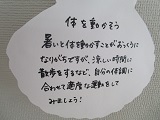 体を動かそう
暑いと体を動かすことがおっくうに
なりがちですが、涼しい時間に
散歩をするなど、自分の体調に
合わせて適度な運動をして
みましょう!